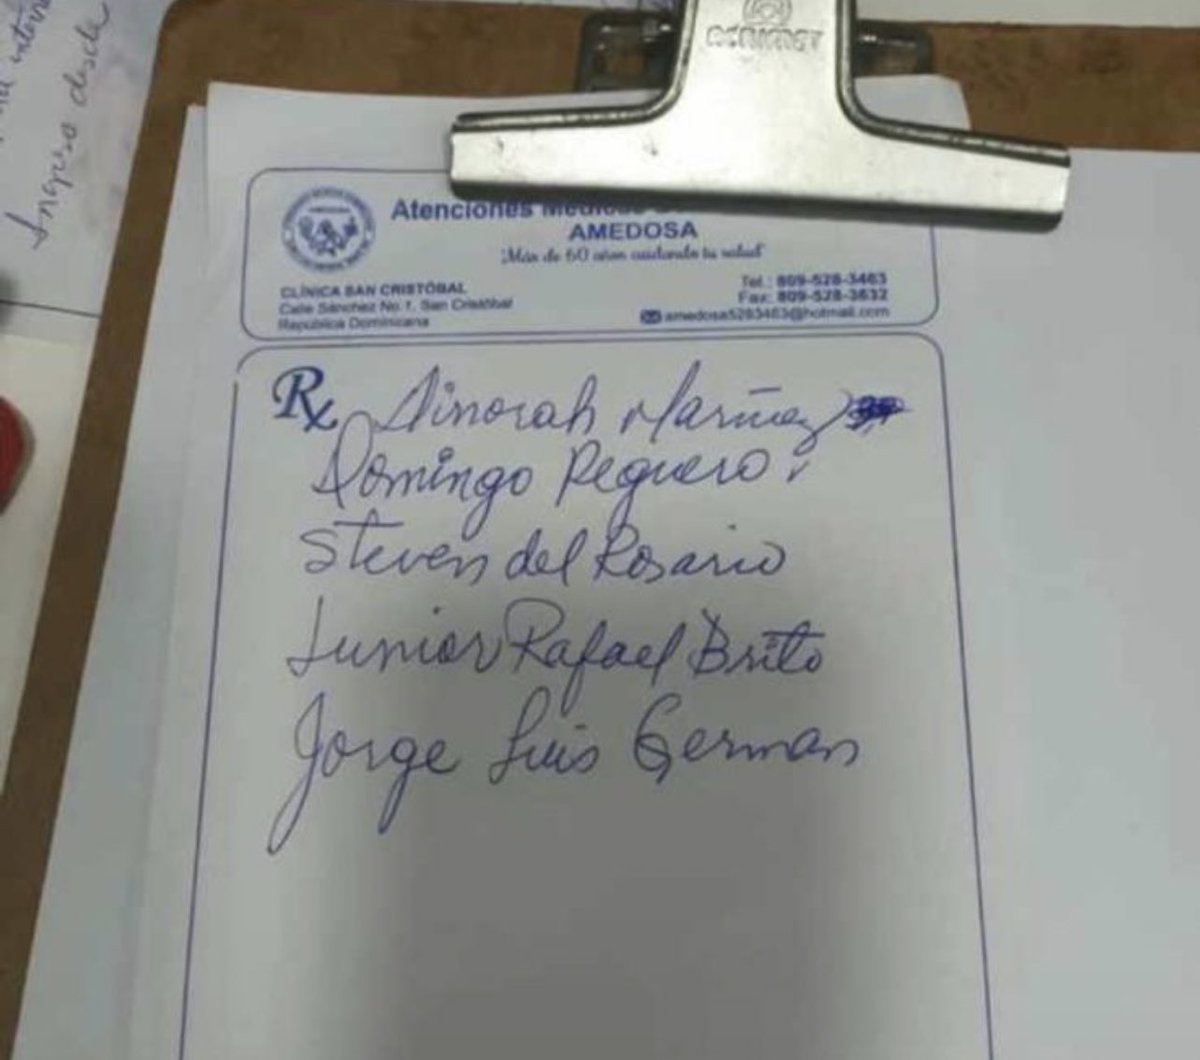 Ingreso desde
Atenciones Medicas
AMEDOSA
Más de 60 años cuidando tu salud
CLÍNICA SAN CRISTÓBAL
Calle Sánchez No.1, San Cristóbal
República Dominicana
Tel.: 809-528-3463
Fax: 809-528-3632
amedosa5283463@hotmail.com
Rx Dinorah Maríñez
Domingo Peguero
Steven del Rosario
Junior Rafael Brito
Jorge Luis German